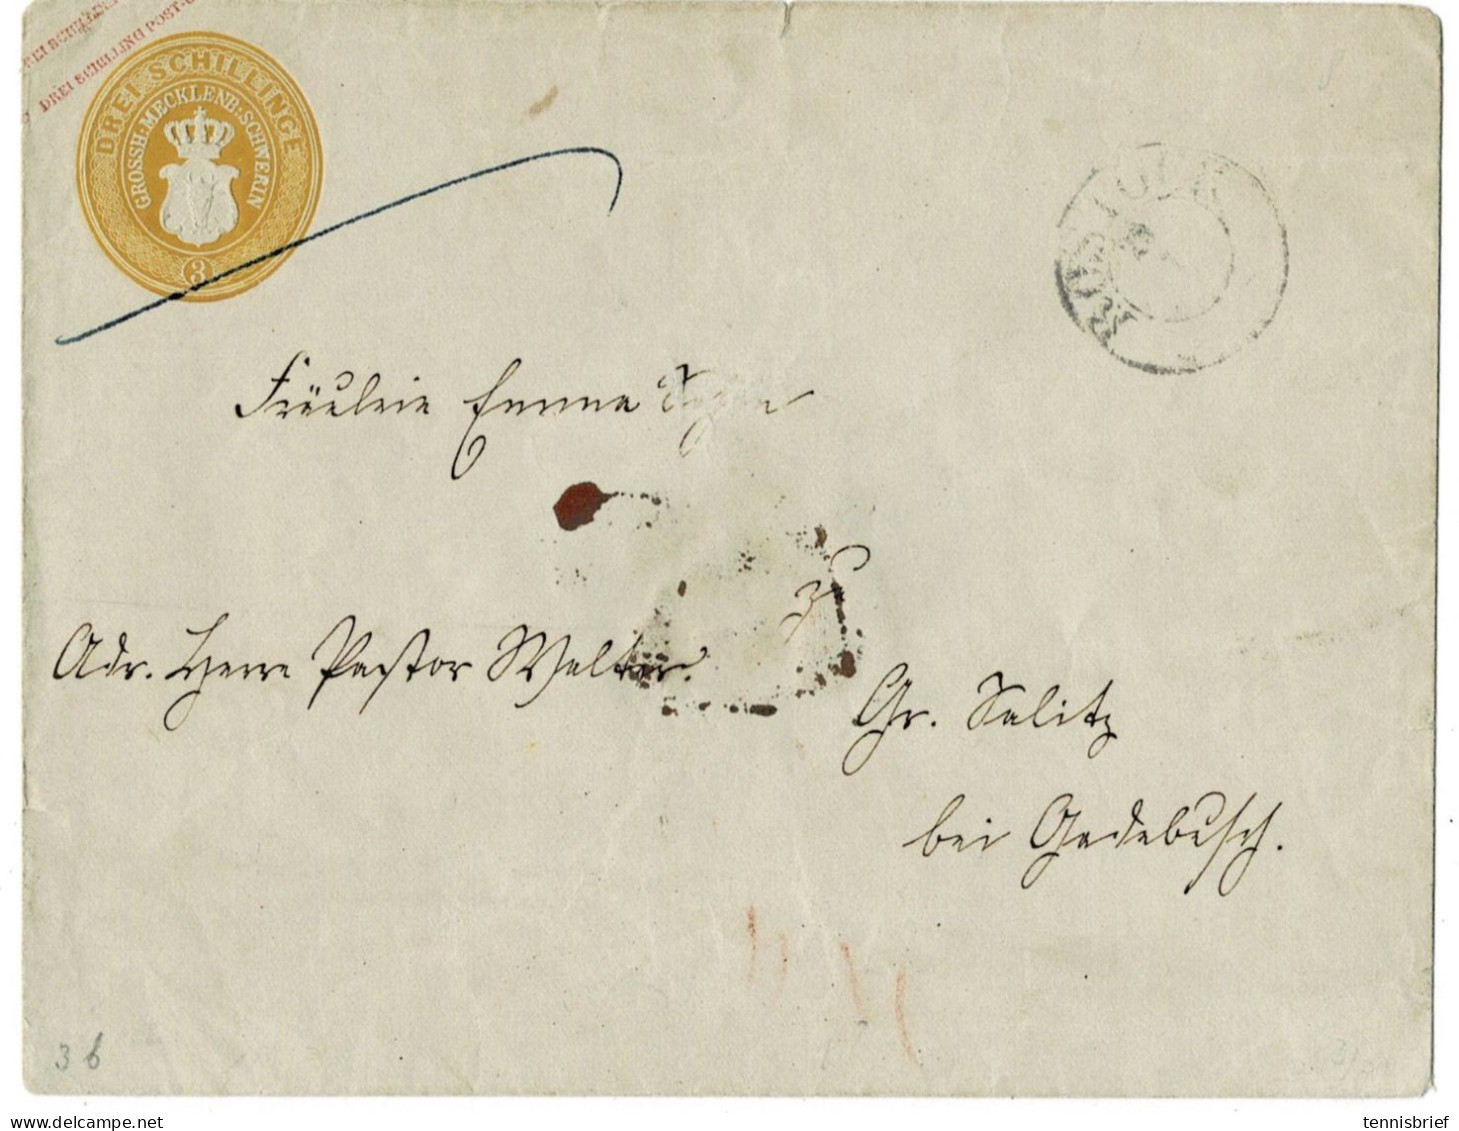 DREI SCHILLING
DREI SCHILLING POST-
DREI SCHILLINGE
GROSSH: MECKLENB: SCHWERIN
3
ROSTOCK
Fräulein Emma
Adr. Herrn Pastor Walter.
Gr. Salitz
bei Gadebusch.
3 b
tennisbrief